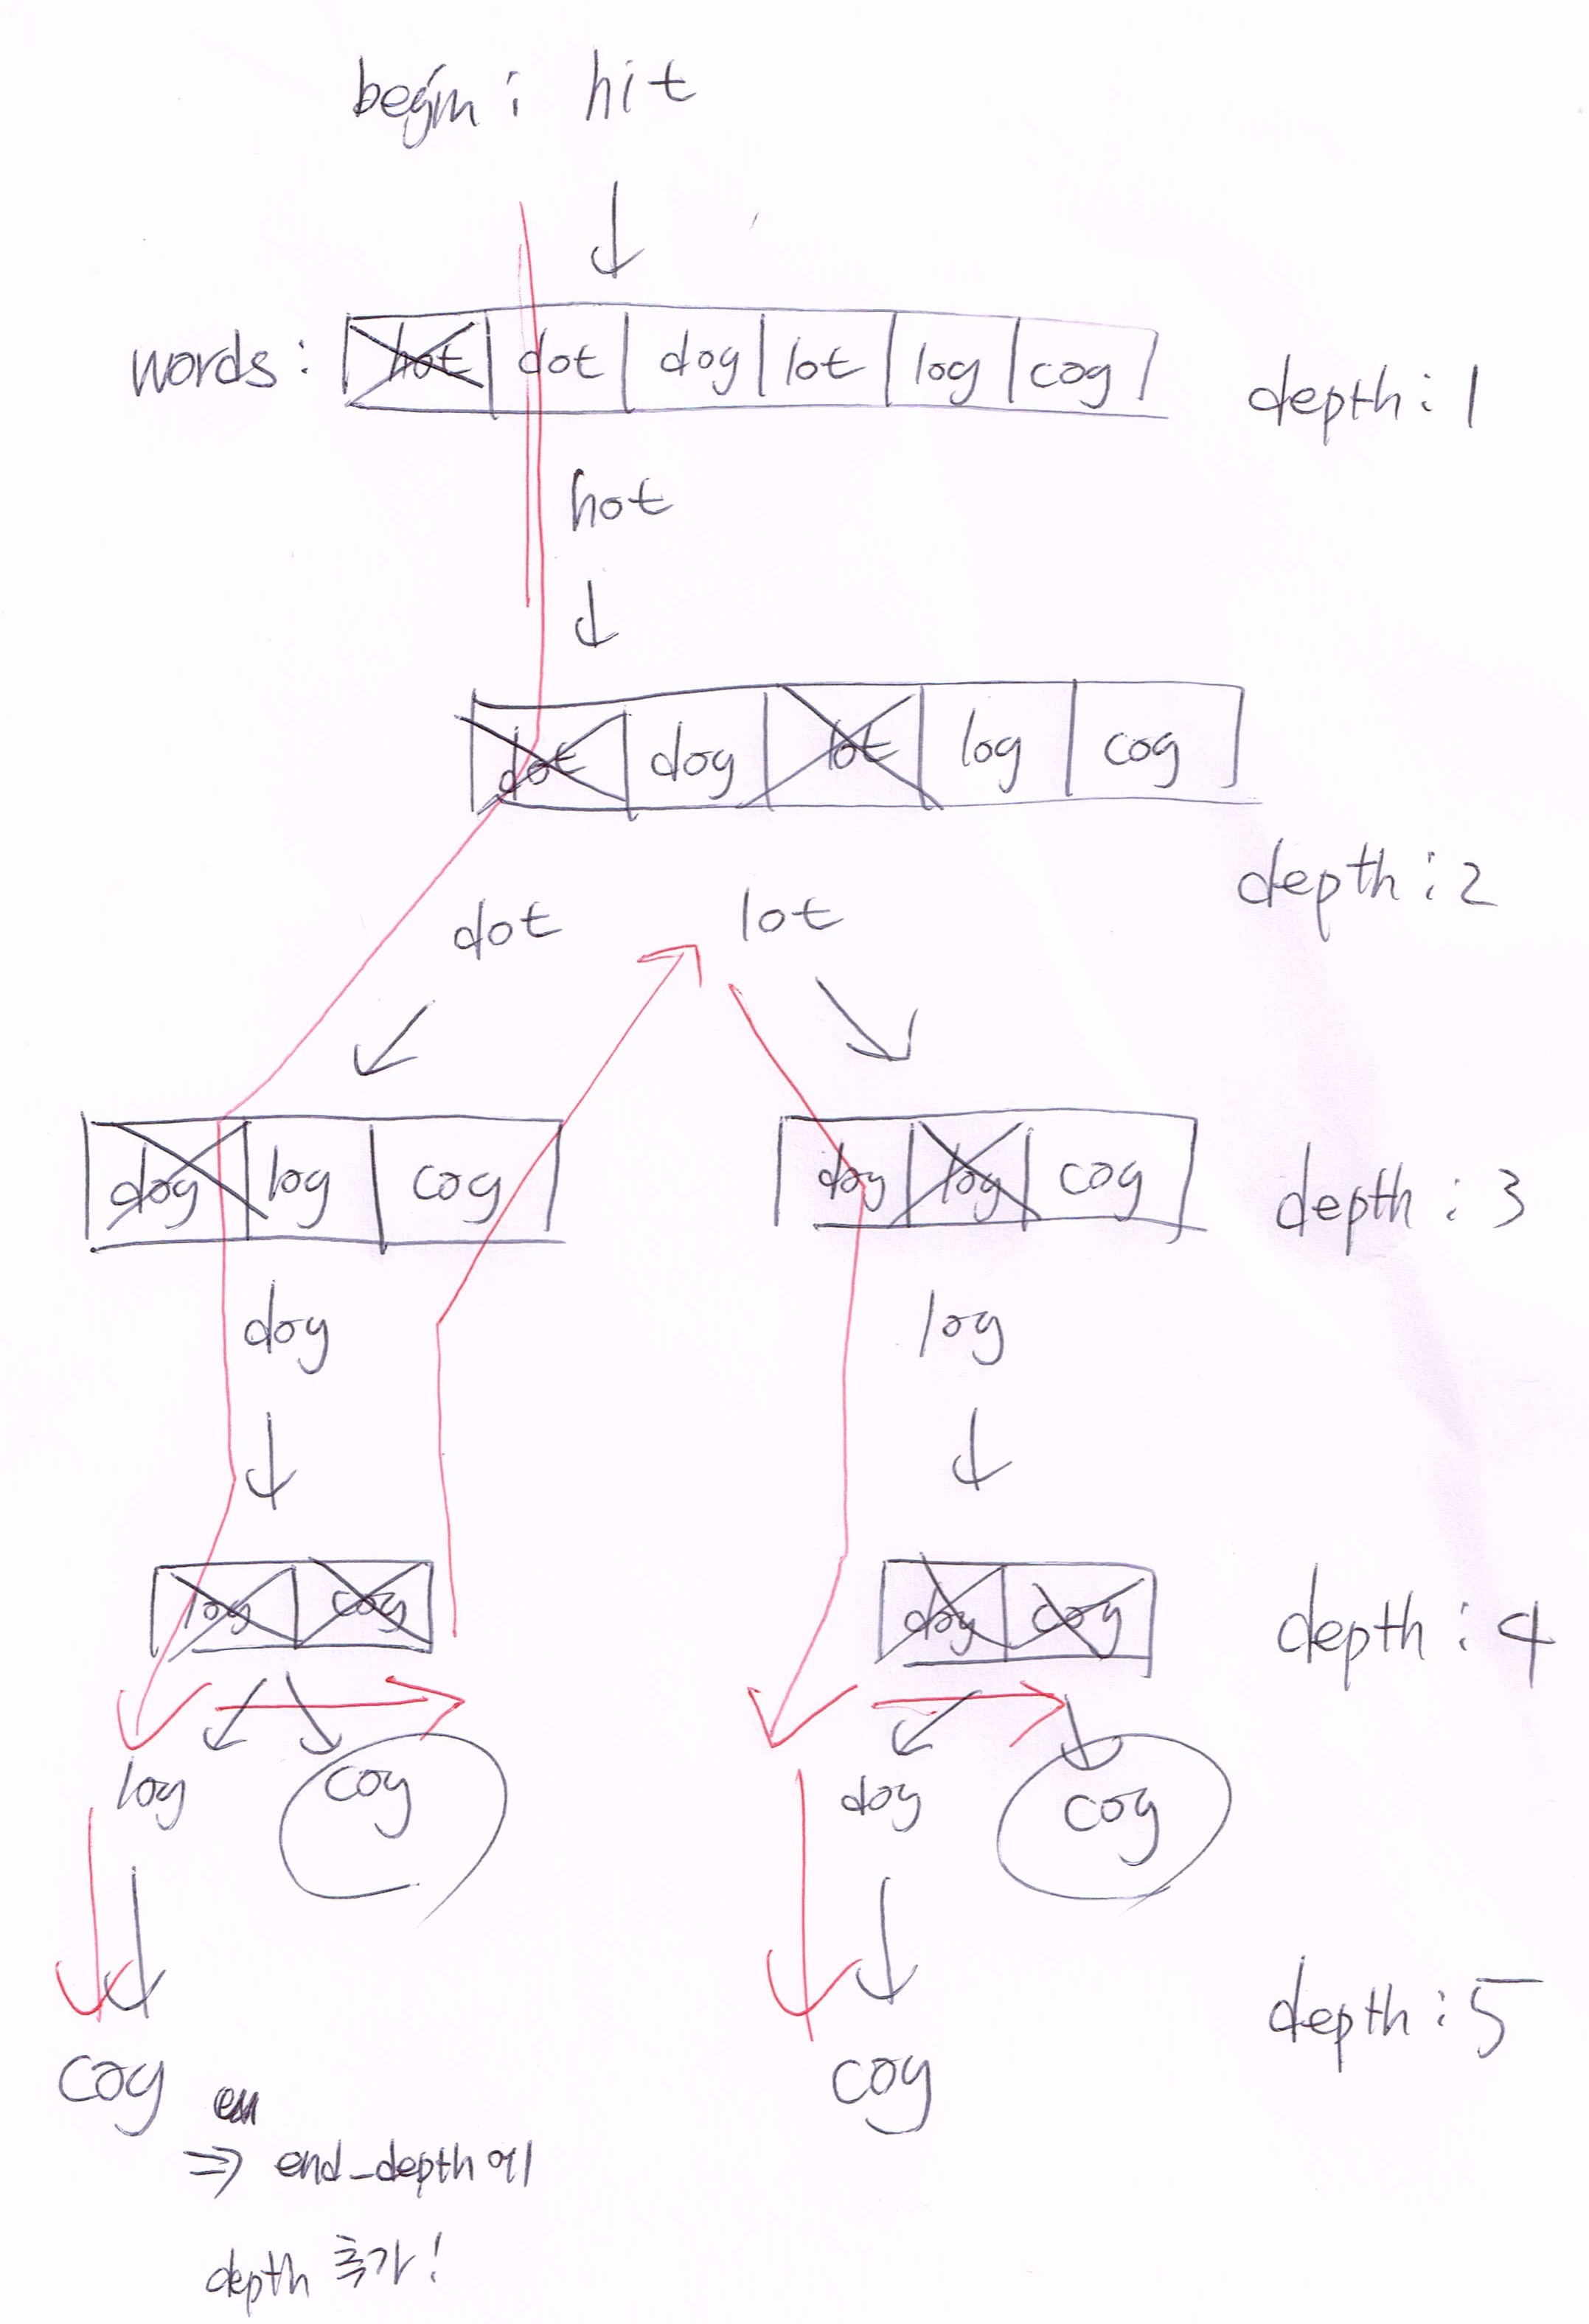 begin : hit
words : hot dot dog lot log cog depth : 1
hot
dot dog lot log cog
depth : 2
dot lot
dog log cog dog log cog depth : 3
dog log
log cog dog cog depth : 4
log cog dog cog
depth : 5
cog cog
⇒ end_depth에
depth 추가!